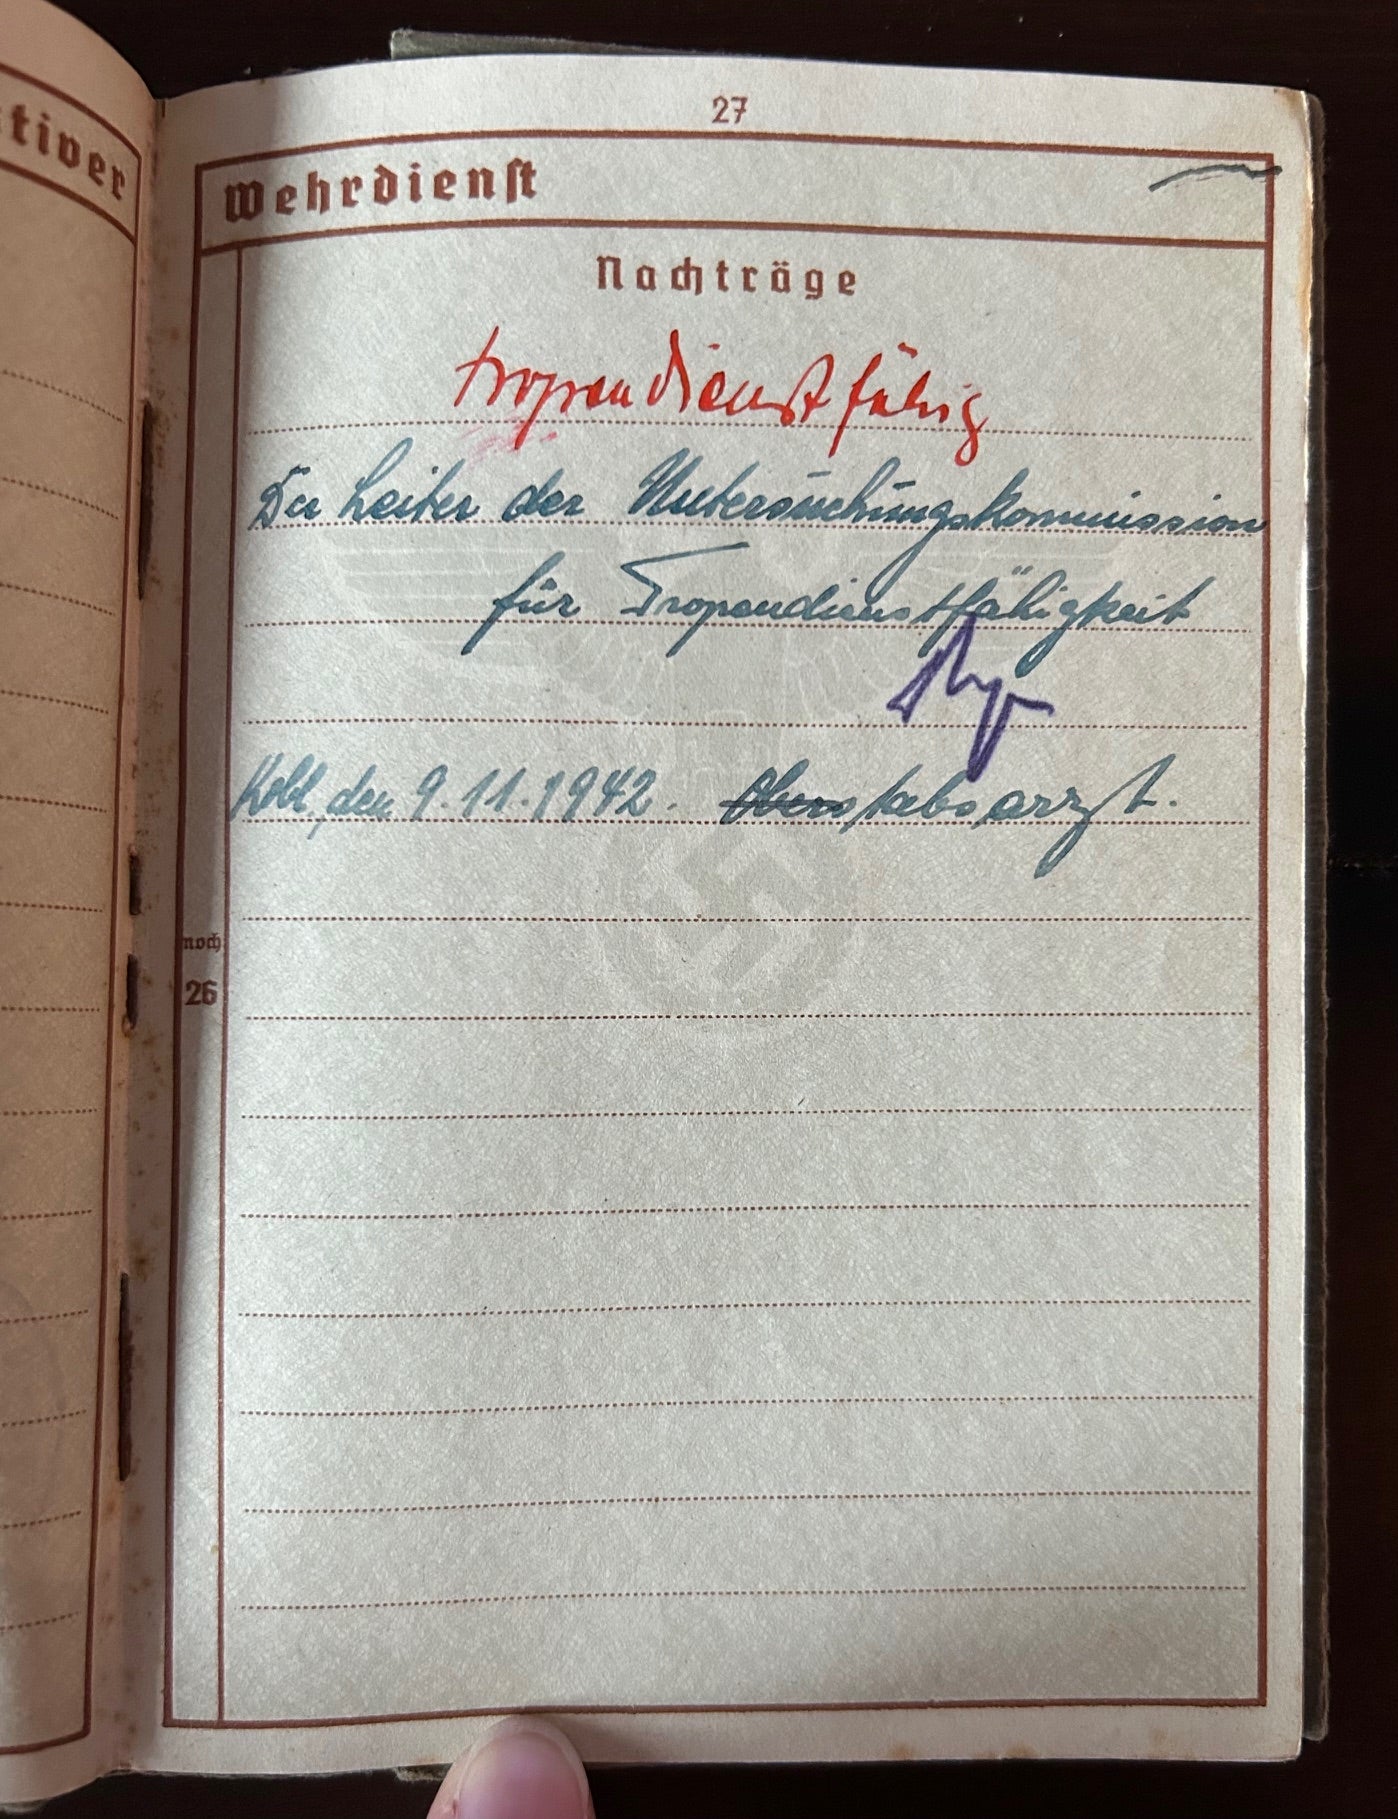 tiver
27
Wehrdienst
Nachträge
tropendienstfähig
Der Leiter der Untersuchungskommission
für Tropendienstfähigkeit
den 9.11.1942. Oberstabsarzt.
noch
26